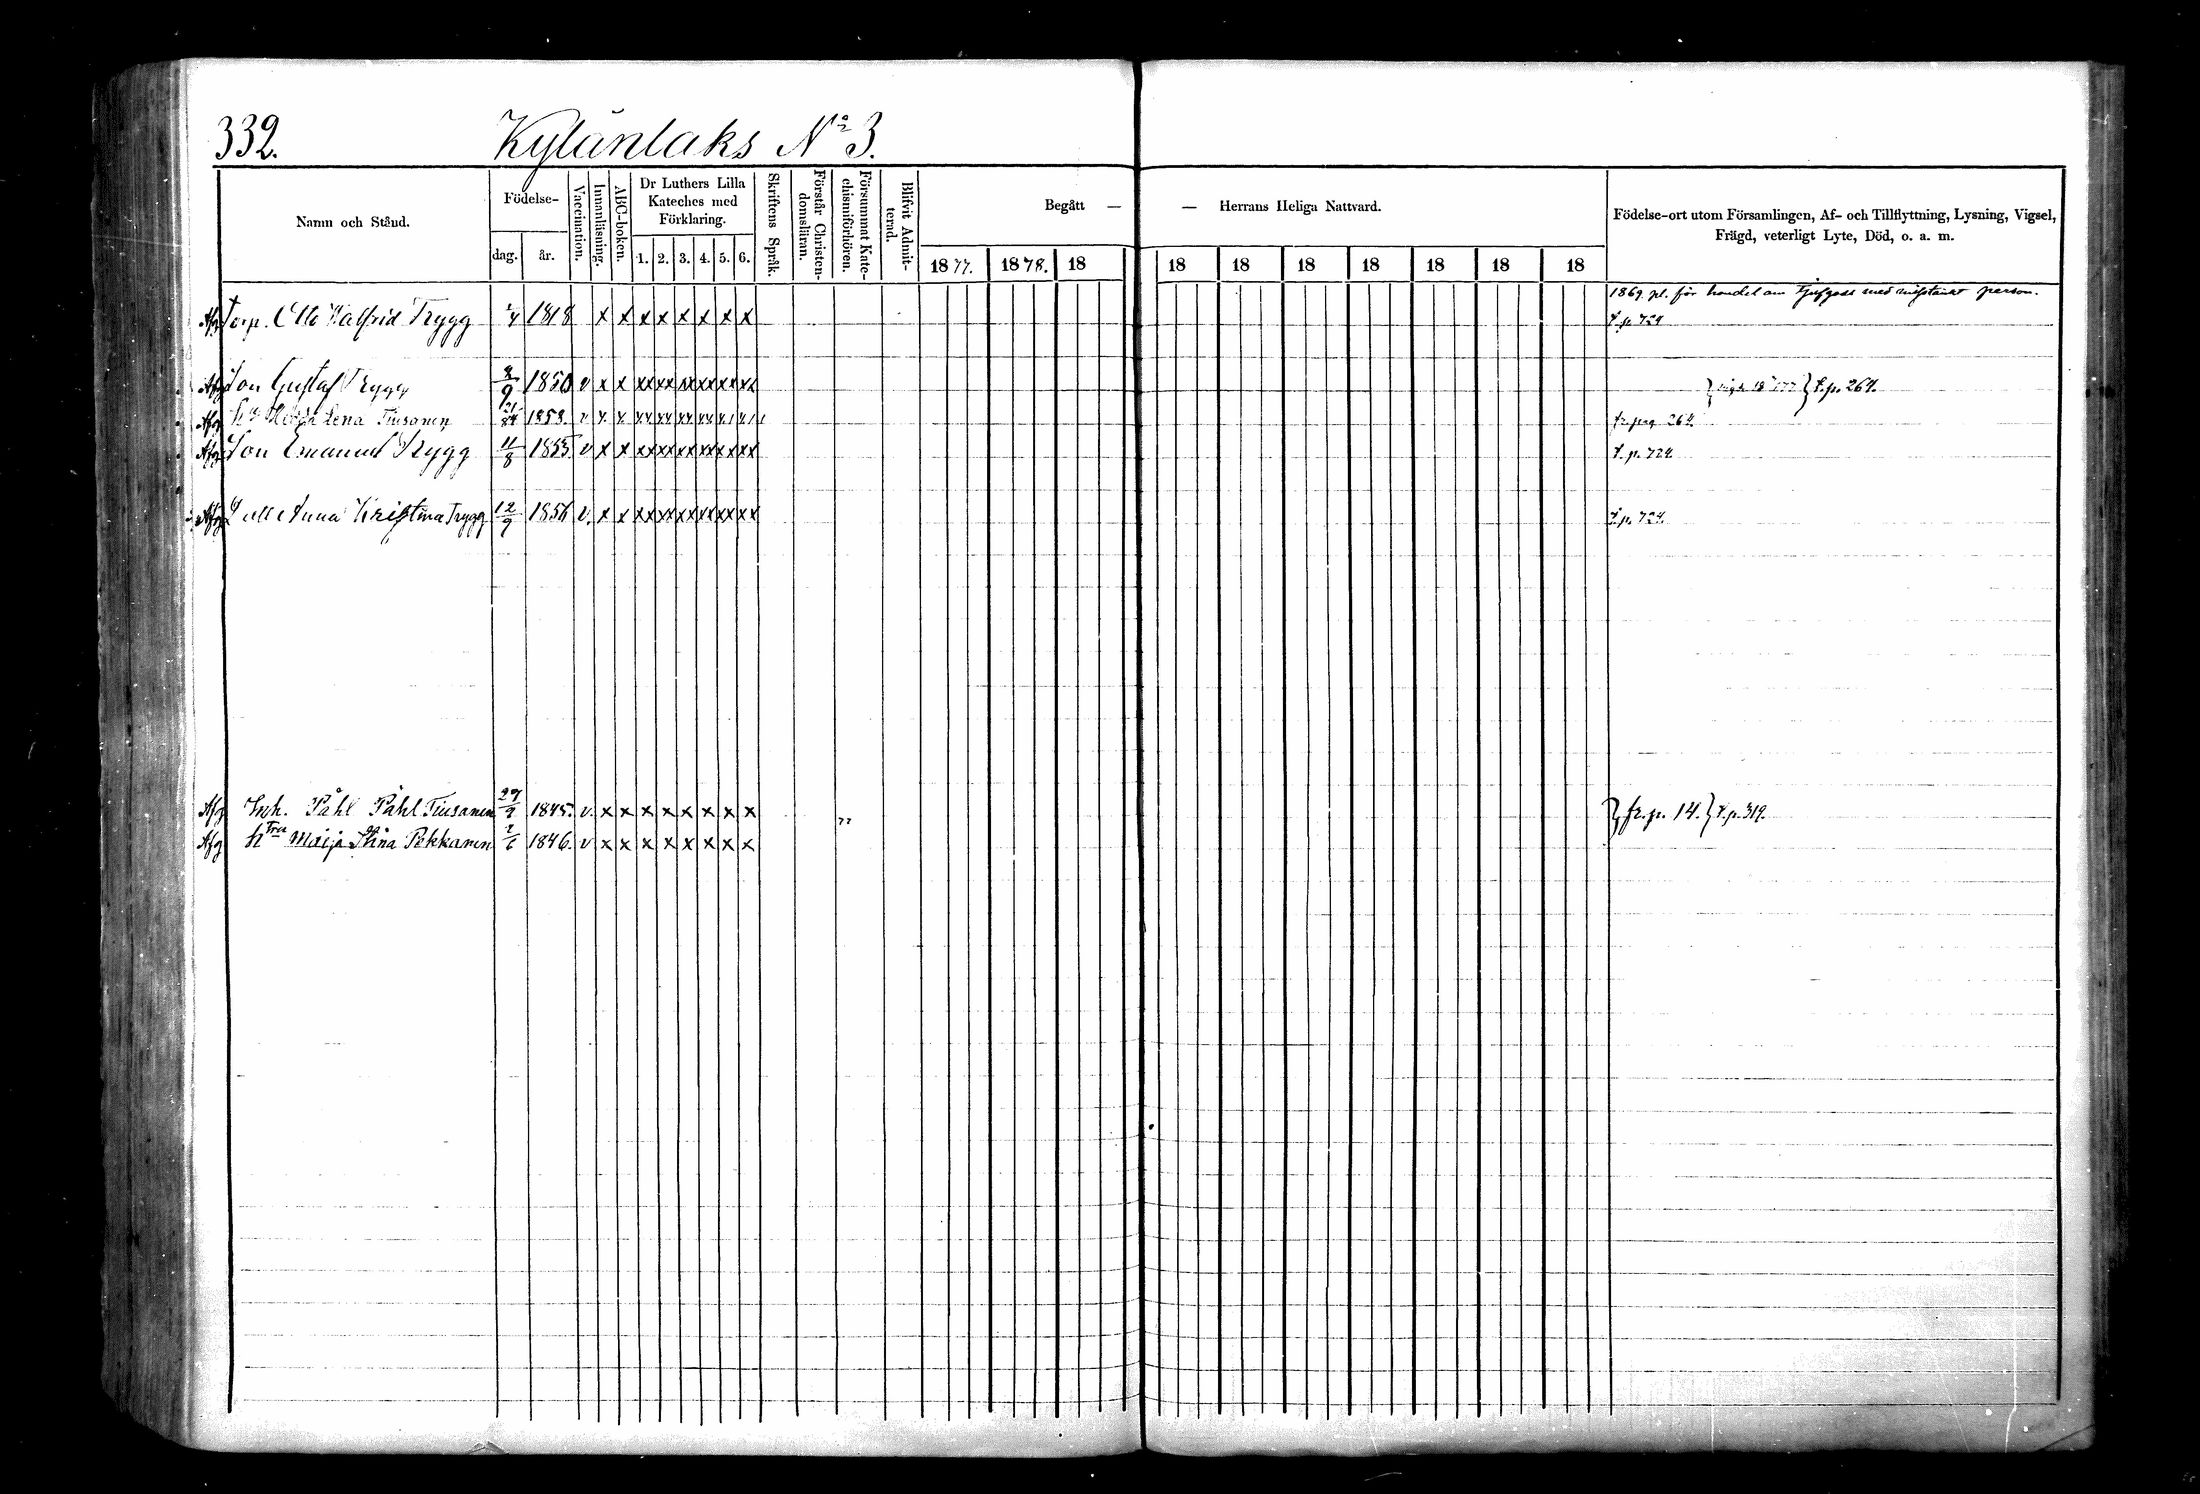 332. Kylänlaks Nº 3.
Namn och Stånd. Födelse- dag. år. Vaccination. Innanläsning. ABC-boken. Dr Luthers Lilla Kateches med Förklaring. 1. 2. 3. 4. 5. 6. Skriftens Språk. Förstår Christendomsläran. Försummat Katechismiförhören. Blifvit Admitterad. Begått — — Herrans Heliga Nattvard. Födelse-ort utom Församlingen, Af- och Tillflyttning, Lysning, Vigsel, Frägd, veterligt Lyte, Död, o. a. m.
1877. 1878. 18 18 18 18 18 18 18 18
1869. pl. för handel om tjufgods med misstänkt person.
Afg Torp. Otto Walfrid Trygg 1818 x x x x x x x x t. p. 724
Afg Son Gustaf Trygg 8/9 1850 v x x xx xx xx xx xx xx t. p. 264.
Afg Lena Tiusanen 1858. v x x xx xx xx xx fr. pag 264
Afg Son Emanuel Trygg 11/8 1855 v x x xx xx xx xx xx xx t. p. 724.
Afg Anna Kristina Trygg 12/9 v. x x xx xx xx xx xx xx t. p. 724.
Afg Inh. Påhl Påhl Tiusanen 29/9 1845. v. x x x x x x x x } fr. p. 14. } t. p. 319.
Afg Maija Stina Pekkanen 1846. v x x x x x x x x